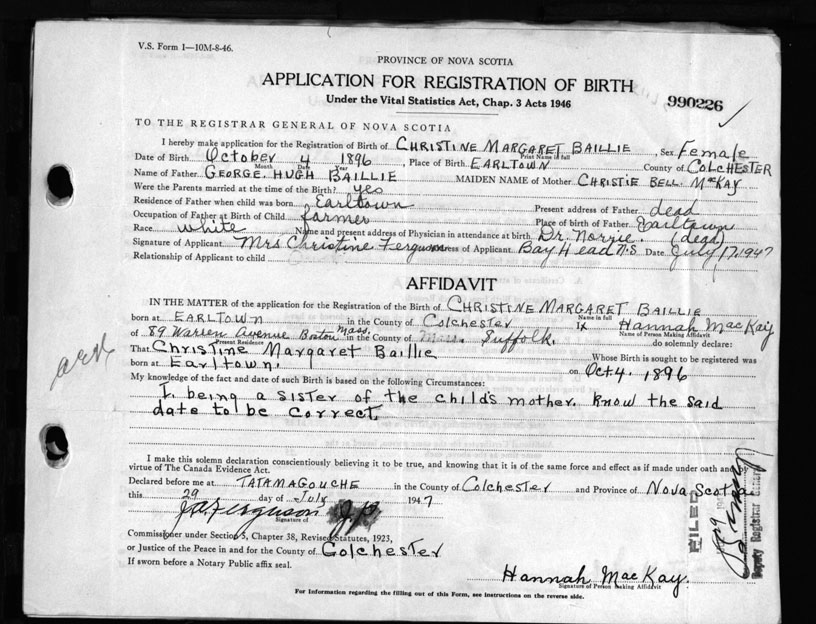 V.S. Form 1—10M-8-46.
PROVINCE OF NOVA SCOTIA
APPLICATION FOR REGISTRATION OF BIRTH
Under the Vital Statistics Act, Chap. 3 Acts 1946
990226
TO THE REGISTRAR GENERAL OF NOVA SCOTIA
I hereby make application for the Registration of Birth of CHRISTINE MARGARET BAILLIE, Sex Female
Print Name in full
Date of Birth October 4 1896, Place of Birth EARLTOWN County of COLCHESTER
Month Date Year
Name of Father GEORGE HUGH BAILLIE MAIDEN NAME of Mother CHRISTIE BELL MacKAY
Were the Parents married at the time of Birth? yes
Residence of Father when child was born Earltown Present address of Father dead
Occupation of Father at Birth of Child farmer Place of birth of Father Earltown
Race white Name and present address of Physician in attendance at birth Dr. Norrie. (dead)
Signature of Applicant Mrs Christine Ferguson Address of Applicant Bay Head N.S. Date July 17, 1947
Relationship of Applicant to child
AFFIDAVIT
IN THE MATTER of the application for the Registration of the Birth of CHRISTINE MARGARET BAILLIE
Name in full
born at EARLTOWN in the County of Colchester I, Hannah MacKay
Name of Person Making Affidavit
of 89 Warren Avenue Boston Mass. in the County of Mass. Suffolk. do solemnly declare:
Present Residence
That Christine Margaret Baillie Whose Birth is sought to be registered was
born at Earltown. on Oct 4. 1896
My knowledge of the fact and date of such Birth is based on the following Circumstances:
I, being a sister of the child's mother, know the said
date to be correct.
I make this solemn declaration conscientiously believing it to be true, and knowing that it is of the same force and effect as if made under oath and by
virtue of The Canada Evidence Act.
Declared before me at TATAMAGOUCHE in the County of Colchester and Province of Nova Scotia
this 29 day of July 1947
J.A. Ferguson J.P.
Signature of
Commissioner under Section 5, Chapter 38, Revised Statutes, 1923,
or Justice of the Peace in and for the County of Colchester
If sworn before a Notary Public affix seal.
Hannah MacKay.
Signature of Person Making Affidavit
For Information regarding the filling out of this Form, see instructions on the reverse side.
FILED
Deputy Registrar General